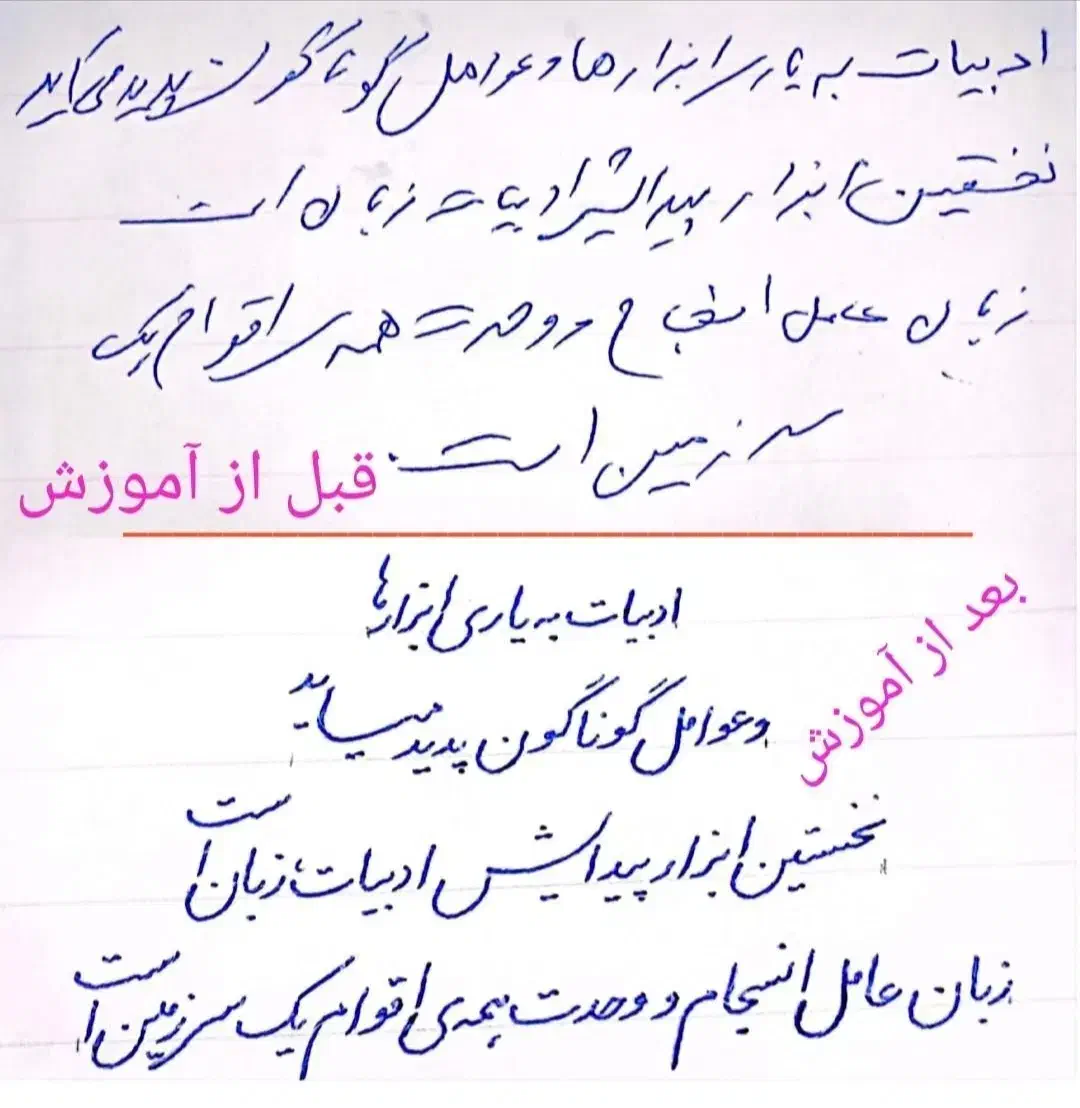 ادبیات به یاری ابزارها و عوامل گوناگون پدید می‌آید
نخستین ابزار پیدایش ادبیات زبان است
زبان عامل انسجام و وحدت همه‌ی اقوام یک
سرزمین است.
قبل از آموزش
بعد از آموزش
ادبیات به یاری ابزارها
و عوامل گوناگون پدید میاید
نخستین ابزار پیدایش ادبیات، زبان است
زبان عامل انسجام و وحدت همه‌ی اقوام یک سرزمین است